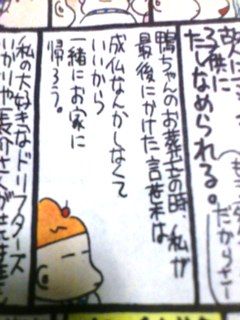 子供に
たしなめられる。
だからさ
鴨ちゃんのお葬式の時、私が
最後にかけた言葉は
成仏なんかしなくて
いいから
一緒にお家に
帰ろう。
私の大好きなドリフターズ
いかりや長介さんが